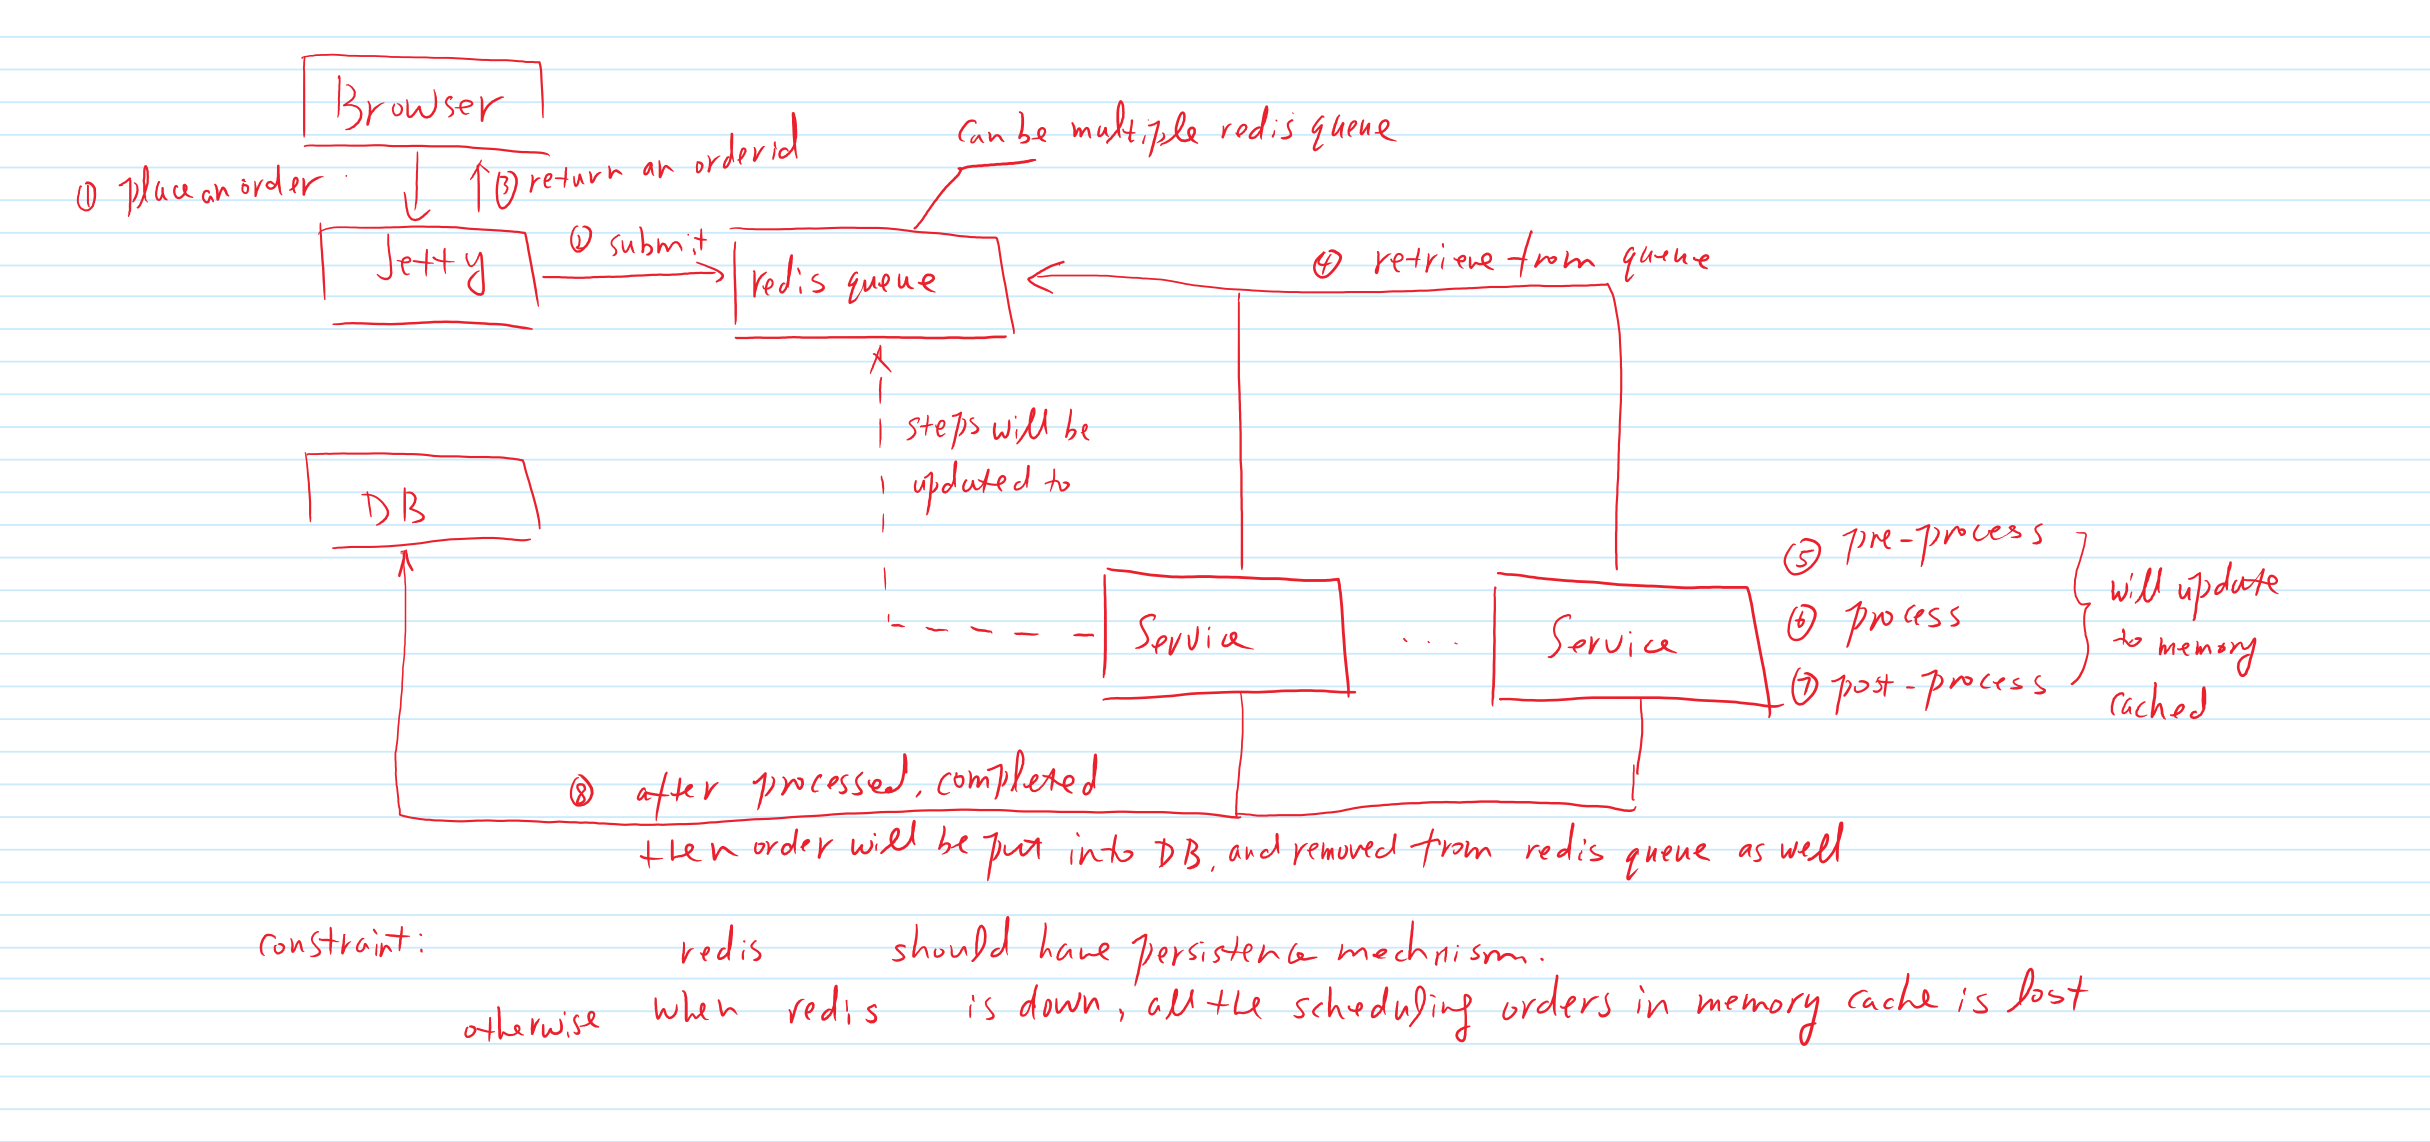 Browser
① place an order
③ return an orderid
can be multiple redis queue
Jetty
② submit
redis queue
④ retrieve from queue
steps will be
updated to
DB
Service
....
Service
⑤ pre-process
⑥ process
⑦ post-process
will update
to memory
cached
⑧ after processed, completed
then order will be put into DB, and removed from redis queue as well
constraint:
redis should have persistence mechnism.
otherwise when redis is down, all the scheduling orders in memory cache is lost